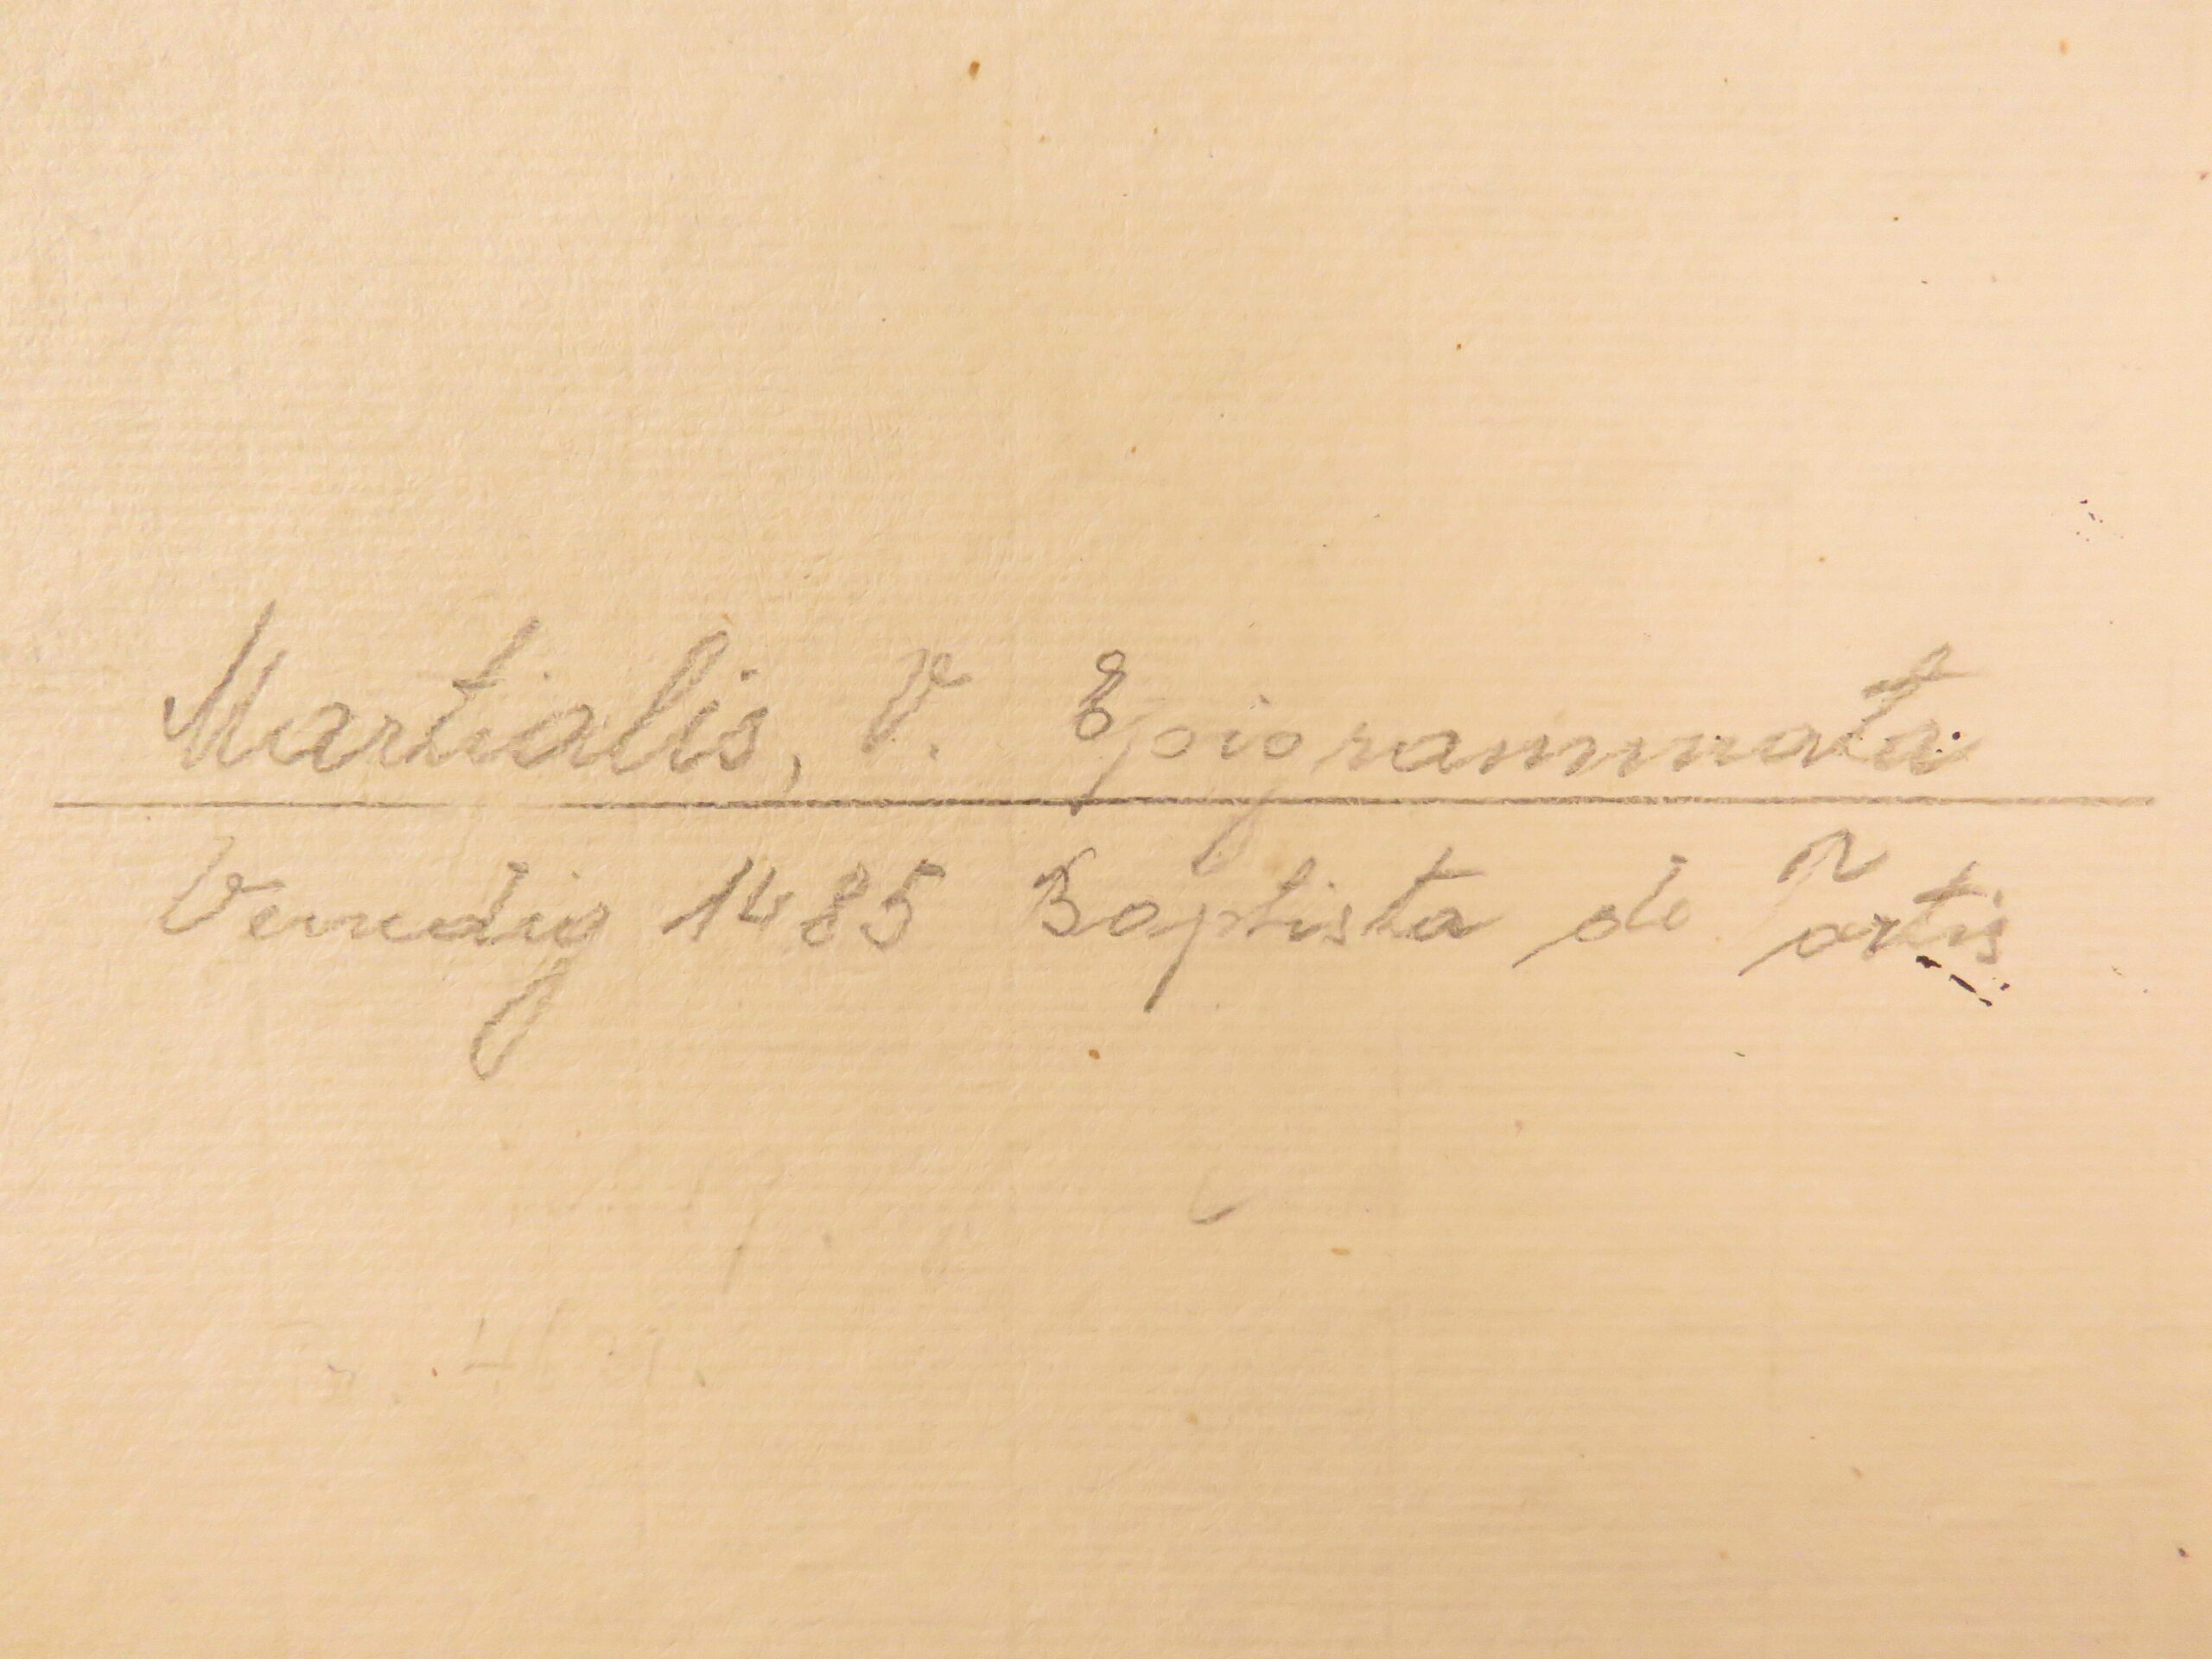 Martialis, V. Epigrammata
Venedig 1485 Baptista de Tortis